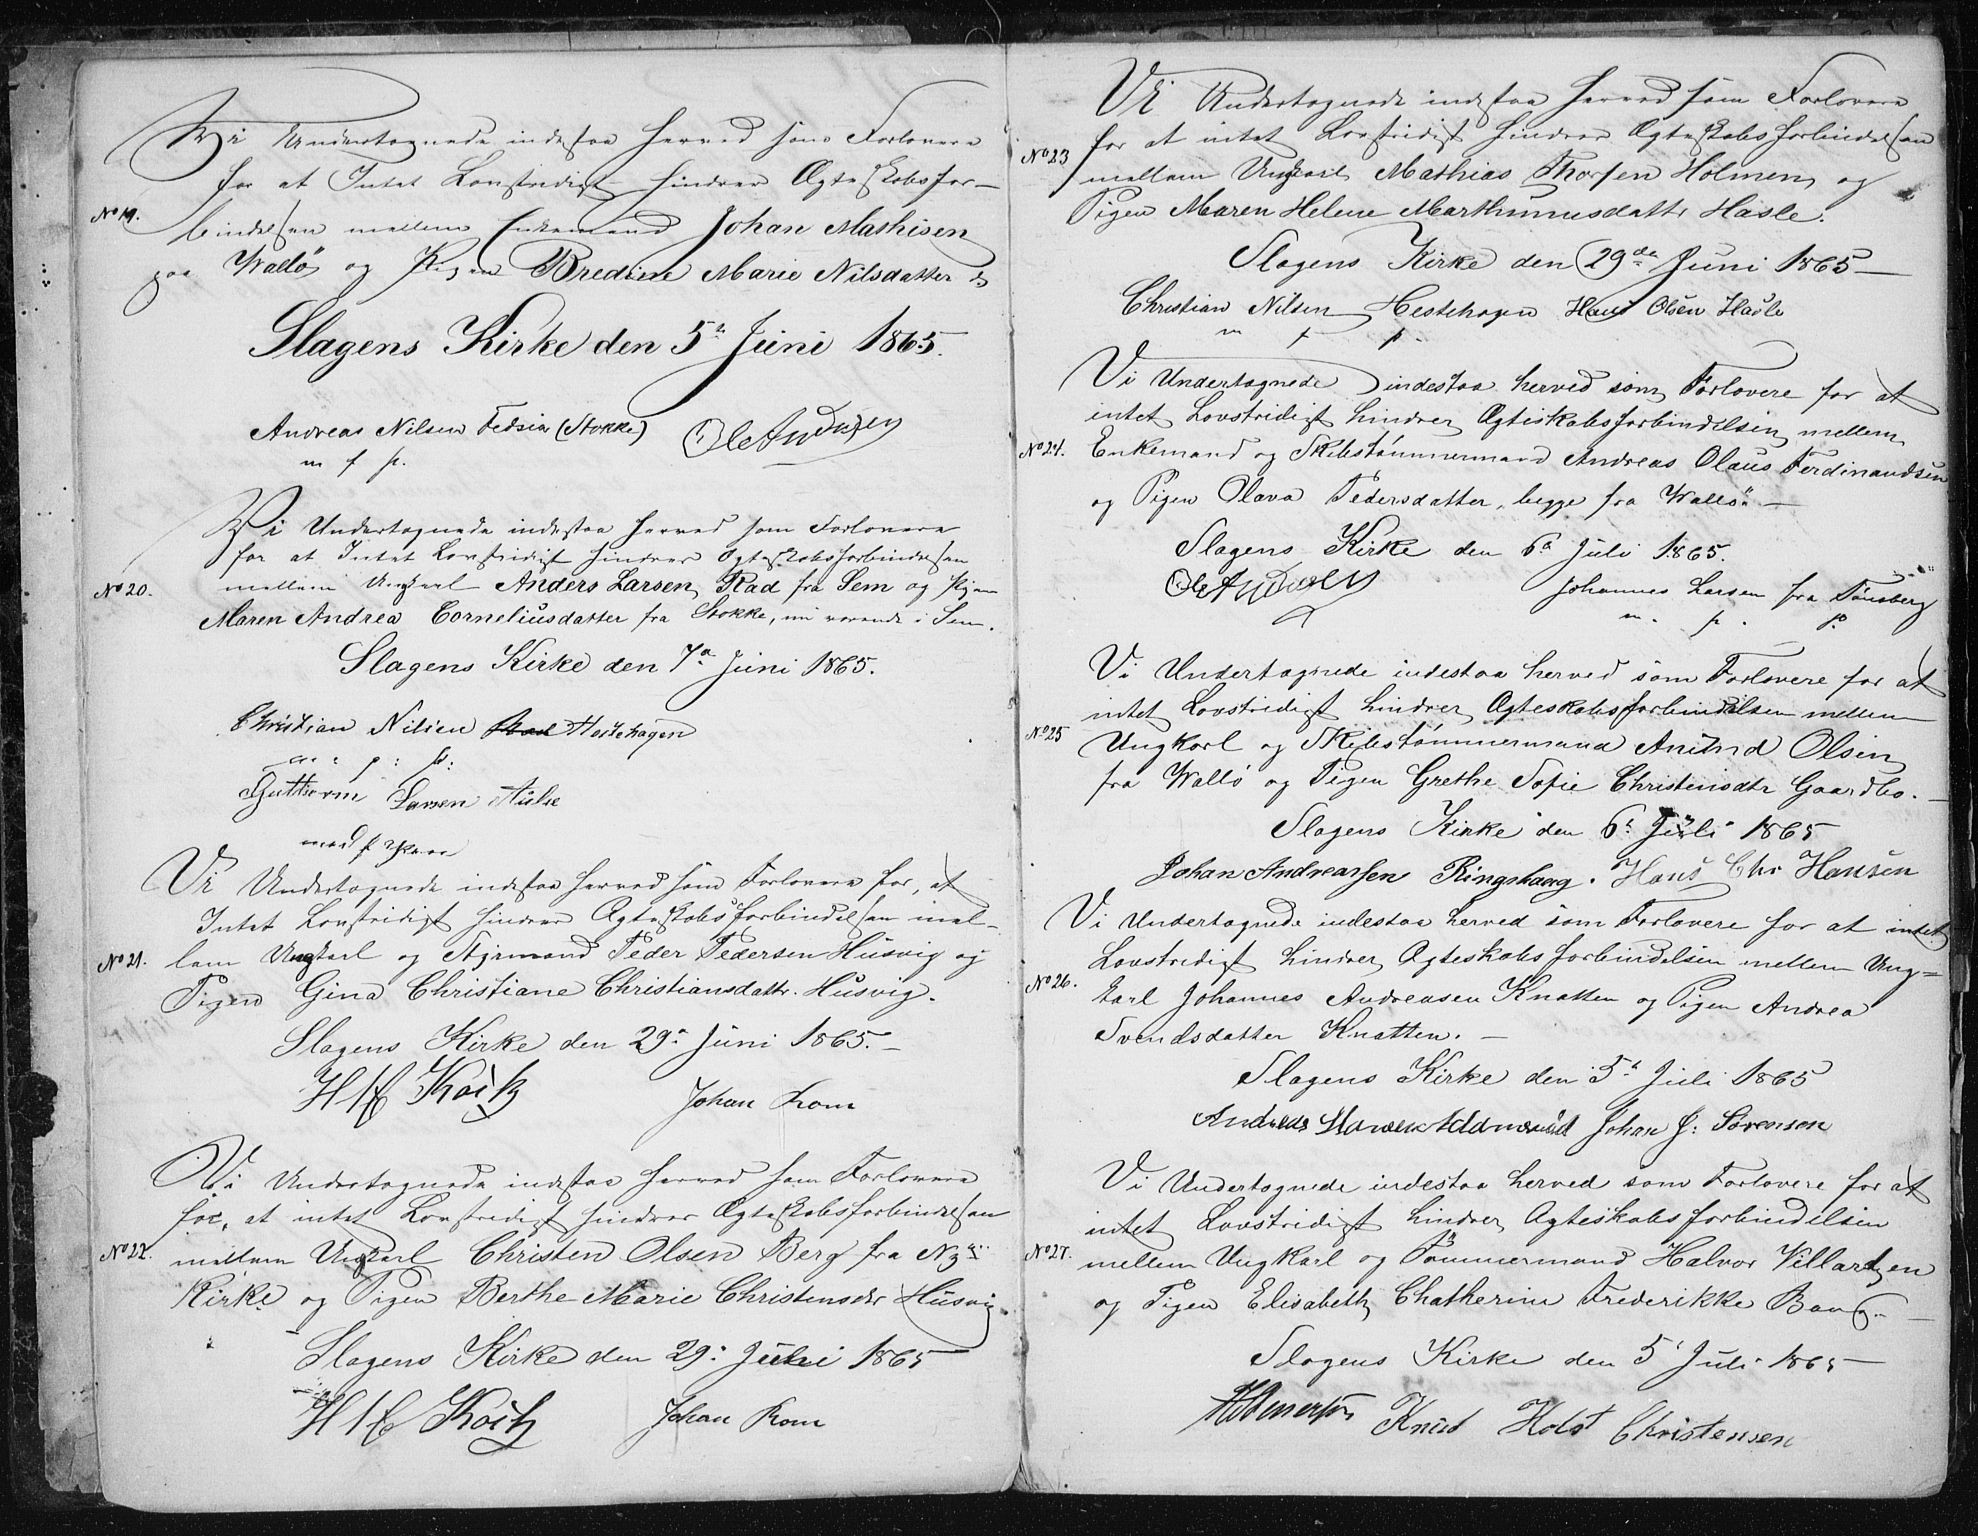 Vi Undertegnede indestaa herved som Forlovere
for at Intet Lovstridigt hindrer Ægteskabsfor-
No 19. bindelsen mellem Enkemand Johan Mathisen
paa Vallø og Pigen Bredine Marie Nilsdatter ds
Slagens Kirke den 5te Juni 1865.
Andreas Nilsen (Stokke) Ole Andersen
m f P.
Vi Undertegnede indestaa herved som Forlovere
for at Intet Lovstridigt hindrer Ægteskabsforbindelsen
No 20. mellem Ungkarl Anders Larsen Rad fra Sem og Pigen
Maren Andrea Corneliusdatter fra Stokke, nu værende i Sem.
Slagens Kirke den 7de Juni 1865.
Christian Nilsen Hestehagen
m : p : P:
Guttorm Larsen Aulie
med f Pen
Vi Undertegnede indestaa herved som Forlovere for, at
Intet Lovstridigt hindrer Ægteskabsforbindelsen mel-
No 21. lem Ungkarl og Styrmand Peder Pedersen Husvig og
Pigen Gina Christiane Christiansdattr. Husvig.
Slagens Kirke den 29de Juni 1865. –
Johan Rom
Vi Undertegnede indestaa herved som Forlovere
for, at intet Lovstridigt hindrer Ægteskabsforbindelsen
No 22. mellem Ungkarl Christen Olsen Berg fra
Kirke og Pigen Berthe Marie Christensdtr Husvig.
Slagens Kirke den 29: Juni 1865
Johan Rom
Vi Undertegnede indestaa herved som Forlovere
for at intet Lovstridigt hindrer Ægteskabsforbindelsen
No 23 mellem Ungkarl Mathias Thorsen Holmen og
Pigen Maren Helene Marthinusdattr Hasle.
Slagens Kirke den 29de Juni 1865 –
Christian Nilsen Hestehagen Hans Olsen Hasle
m f p.
Vi Undertegnede indestaa herved som Forlovere for at
intet Lovstridigt hindrer Ægteskabsforbindelsen mellem
No 24. Enkemand og Skibstømmermand Andreas Olaus Ferdinandsen
og Pigen Olava Pedersdatter, begge fra Wallø –
Slagens Kirke den 6te Juli 1865.
Ole Andersen Johannes Larsen fra Tønsberg
m. p. P.
Vi Undertegnede indestaa herved som Forlovere for at
intet Lovstridigt hindrer Ægteskabsforbindelsen mellem
No 25 Ungkarl og Skibstømmermand Olsen
fra Wallø og Pigen Grethe Sofie Christensdtr Gaardbo. –
Slagens Kirke den 6te Juli 1865
Johan Andreassen Ringshaug. Hans Chr Hansen
Vi Undertegnede indestaa herved som Forlovere for at intet
Lovstridigt hindrer Ægteskabsforbindelsen mellem Ung=
No 26. karl Johannes Andreasen Knatten og Pigen Andrea
Svendsdatter Knatten. –
Slagens Kirke den 5te Juli 1865
Andreas Johan J: Sørensen
Vi Undertegnede indestaa herved som Forlovere for at
intet Lovstridigt hindrer Ægteskabsforbindelsen
No 27. mellem Ungkarl og Tømmermand Halvor Villartsen
og Pigen Elisabeth Chatherine Frederikke Bang. –
Slagens Kirke den 5te Juli 1865 –
Knud Holst Christensen